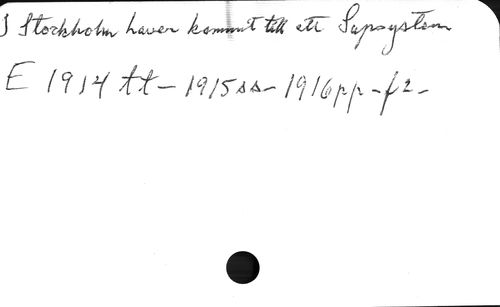 I Stockholm haver kommit till ett Supsystem
E 1914 tt - 1915 ss - 1916 pp - f 2 -